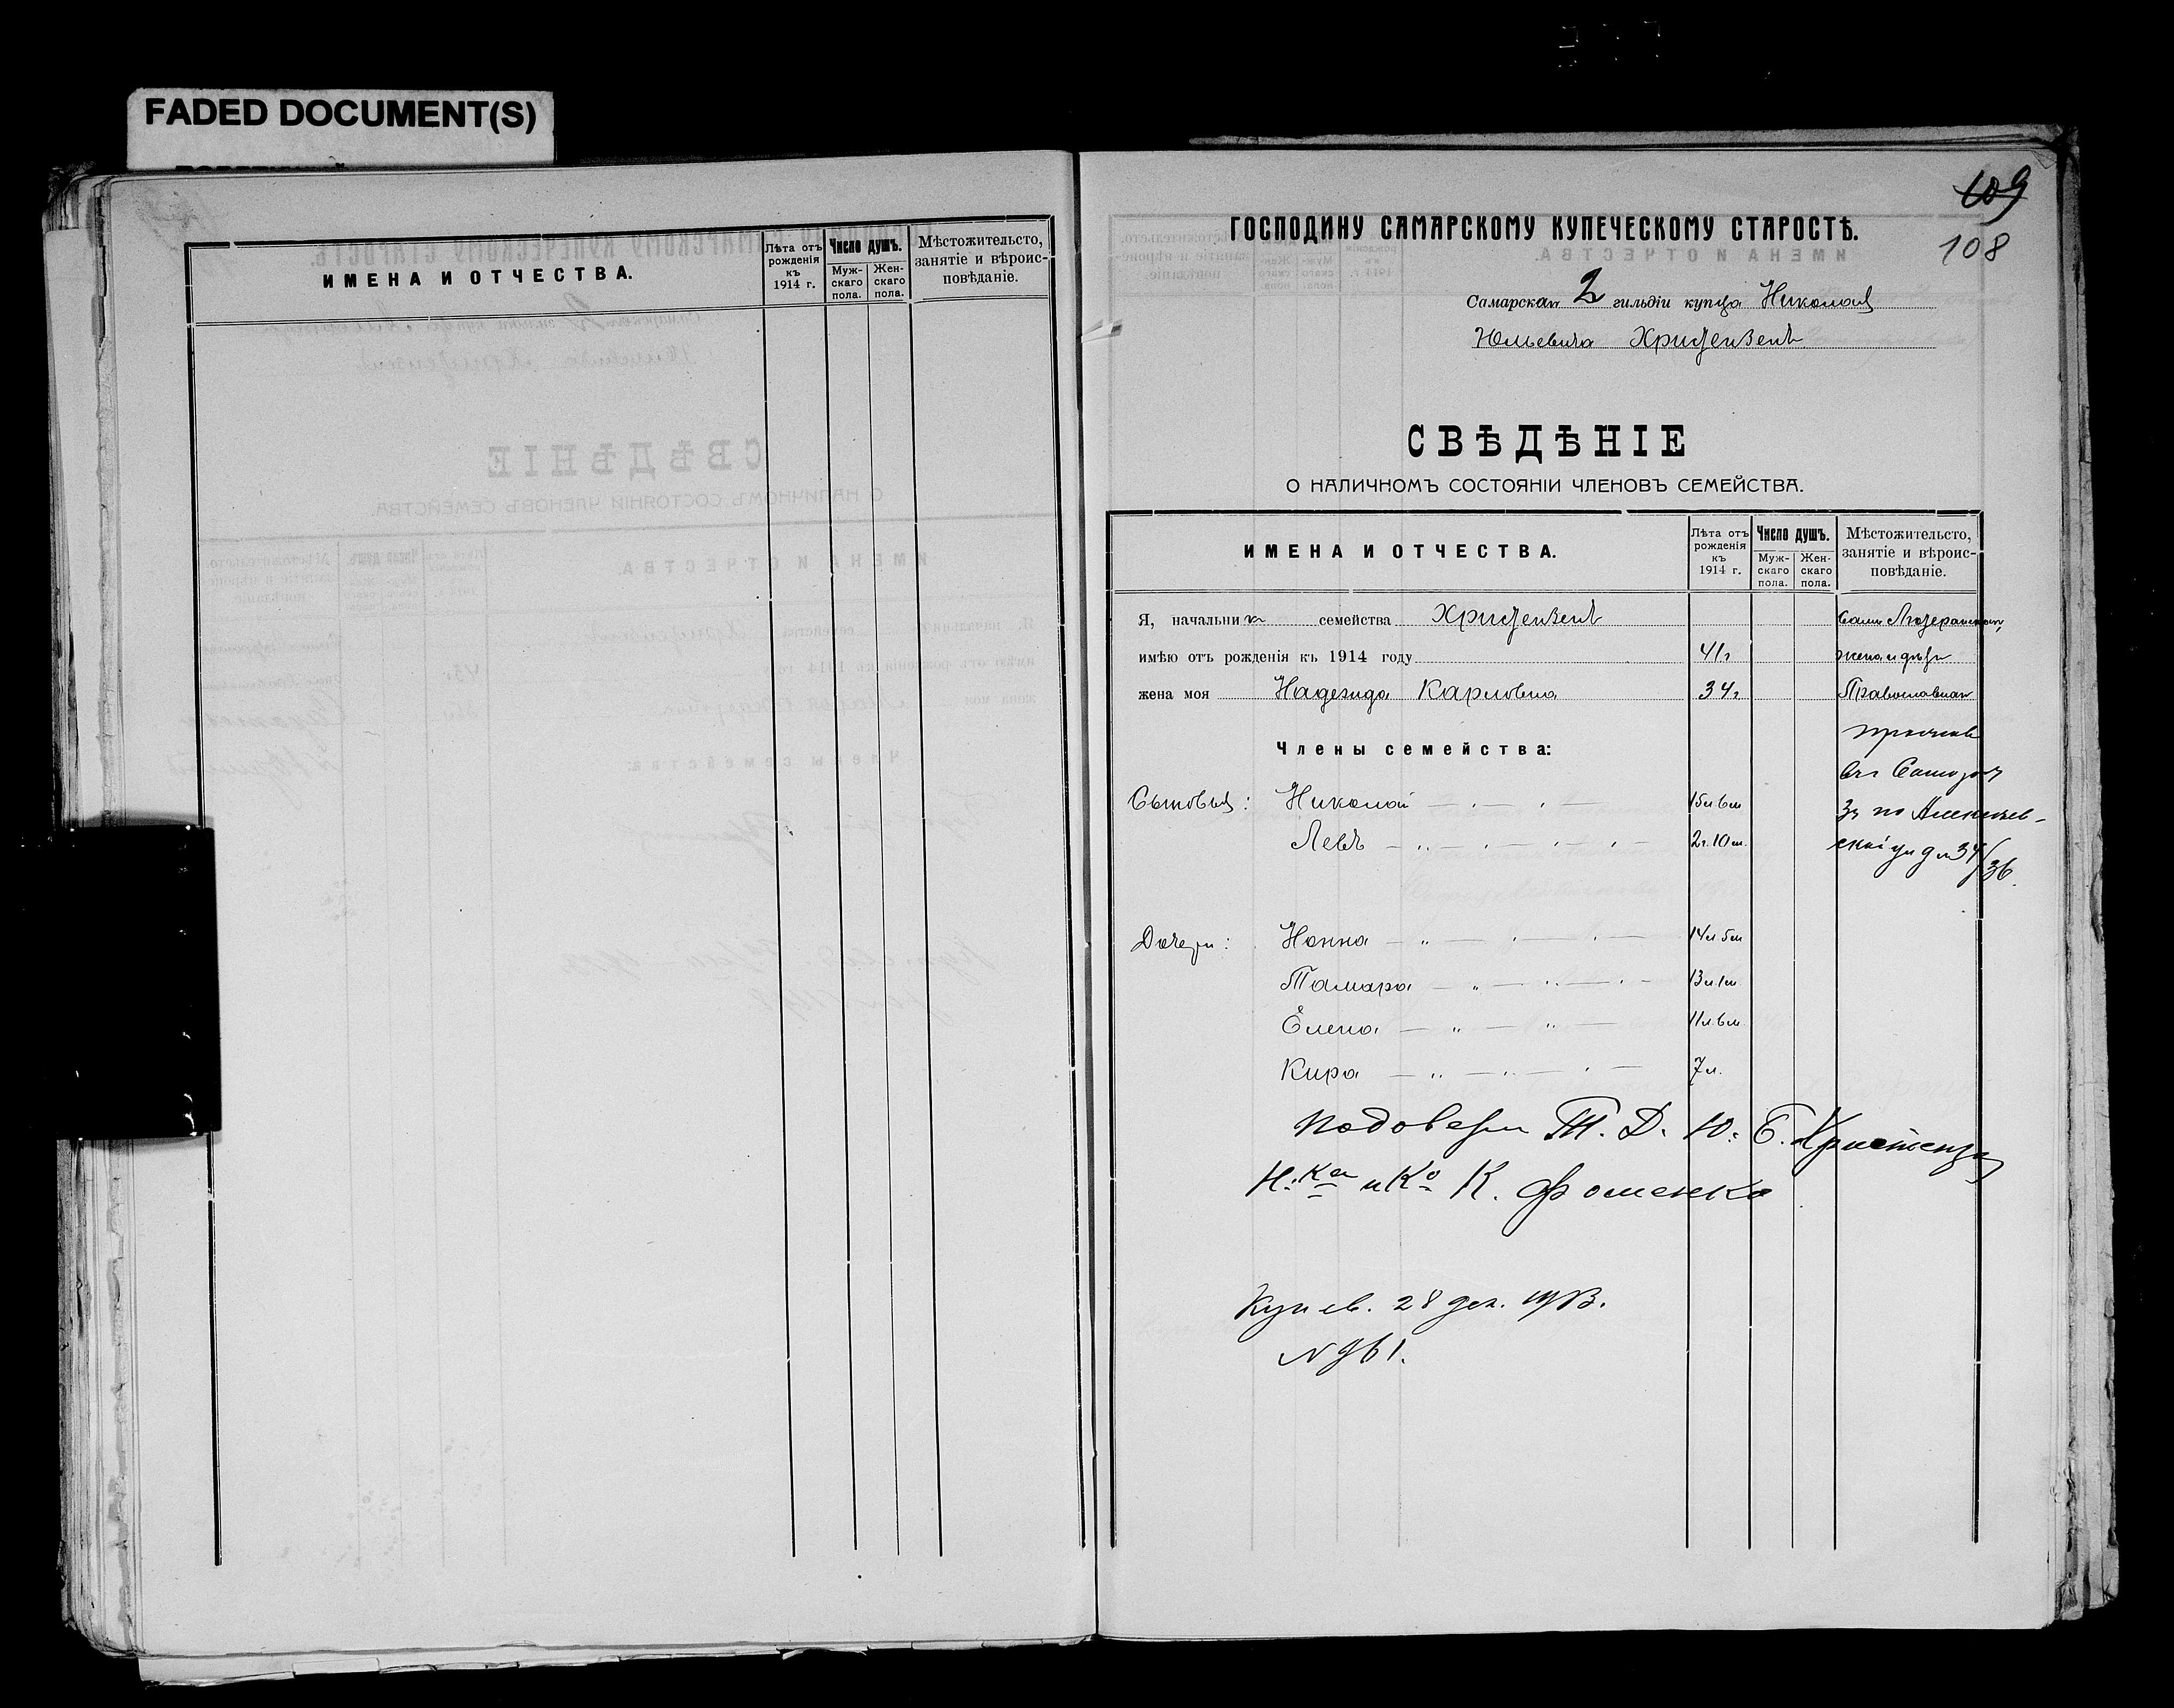 FADED DOCUMENT(S)
ИМЕНА И ОТЧЕСТВА.
Лѣта отъ рожденія къ 1914 г.
Число душъ.
Муж-скаго пола.
Жен-скаго пола.
Мѣстожительсто, занятіе и вѣроис-повѣданіе.
109
108
ГОСПОДИНУ САМАРСКОМУ КУПЕЧЕСКОМУ СТАРОСТѢ.
Самарскаго 2 гильдіи купца Николая
Юльевича Христензенъ
СВѢДѢНІЕ
О НАЛИЧНОМЪ СОСТОЯНІИ ЧЛЕНОВЪ СЕМЕЙСТВА.
ИМЕНА И ОТЧЕСТВА.
Лѣта отъ рожденія къ 1914 г.
Число душъ.
Муж-скаго пола.
Жен-скаго пола.
Мѣстожительсто, занятіе и вѣроис-повѣданіе.
Я, начальникъ семейства Христензенъ Самъ Лютеранинъ,
имѣю отъ рожденія къ 1914 году 41 г жена и дѣти
жена моя Надежда Карловна 34 г Православныя
Члены семейства:
въ Самарѣ
Сыновья: Николай 15 л 6 м
Левъ 2 г. 10 м. 34/36.
Дочери: Нонна 14 л. 5 м
Тамара 13 л. 1 м.
Елена 11 л. 6 м.
Кира 7 л.
по довѣрен Т. Д. Ю. Б. Христензенъ
Н-ки и Ко К. Фоменко
Куп св. 28 дек. 1913.
N 961.